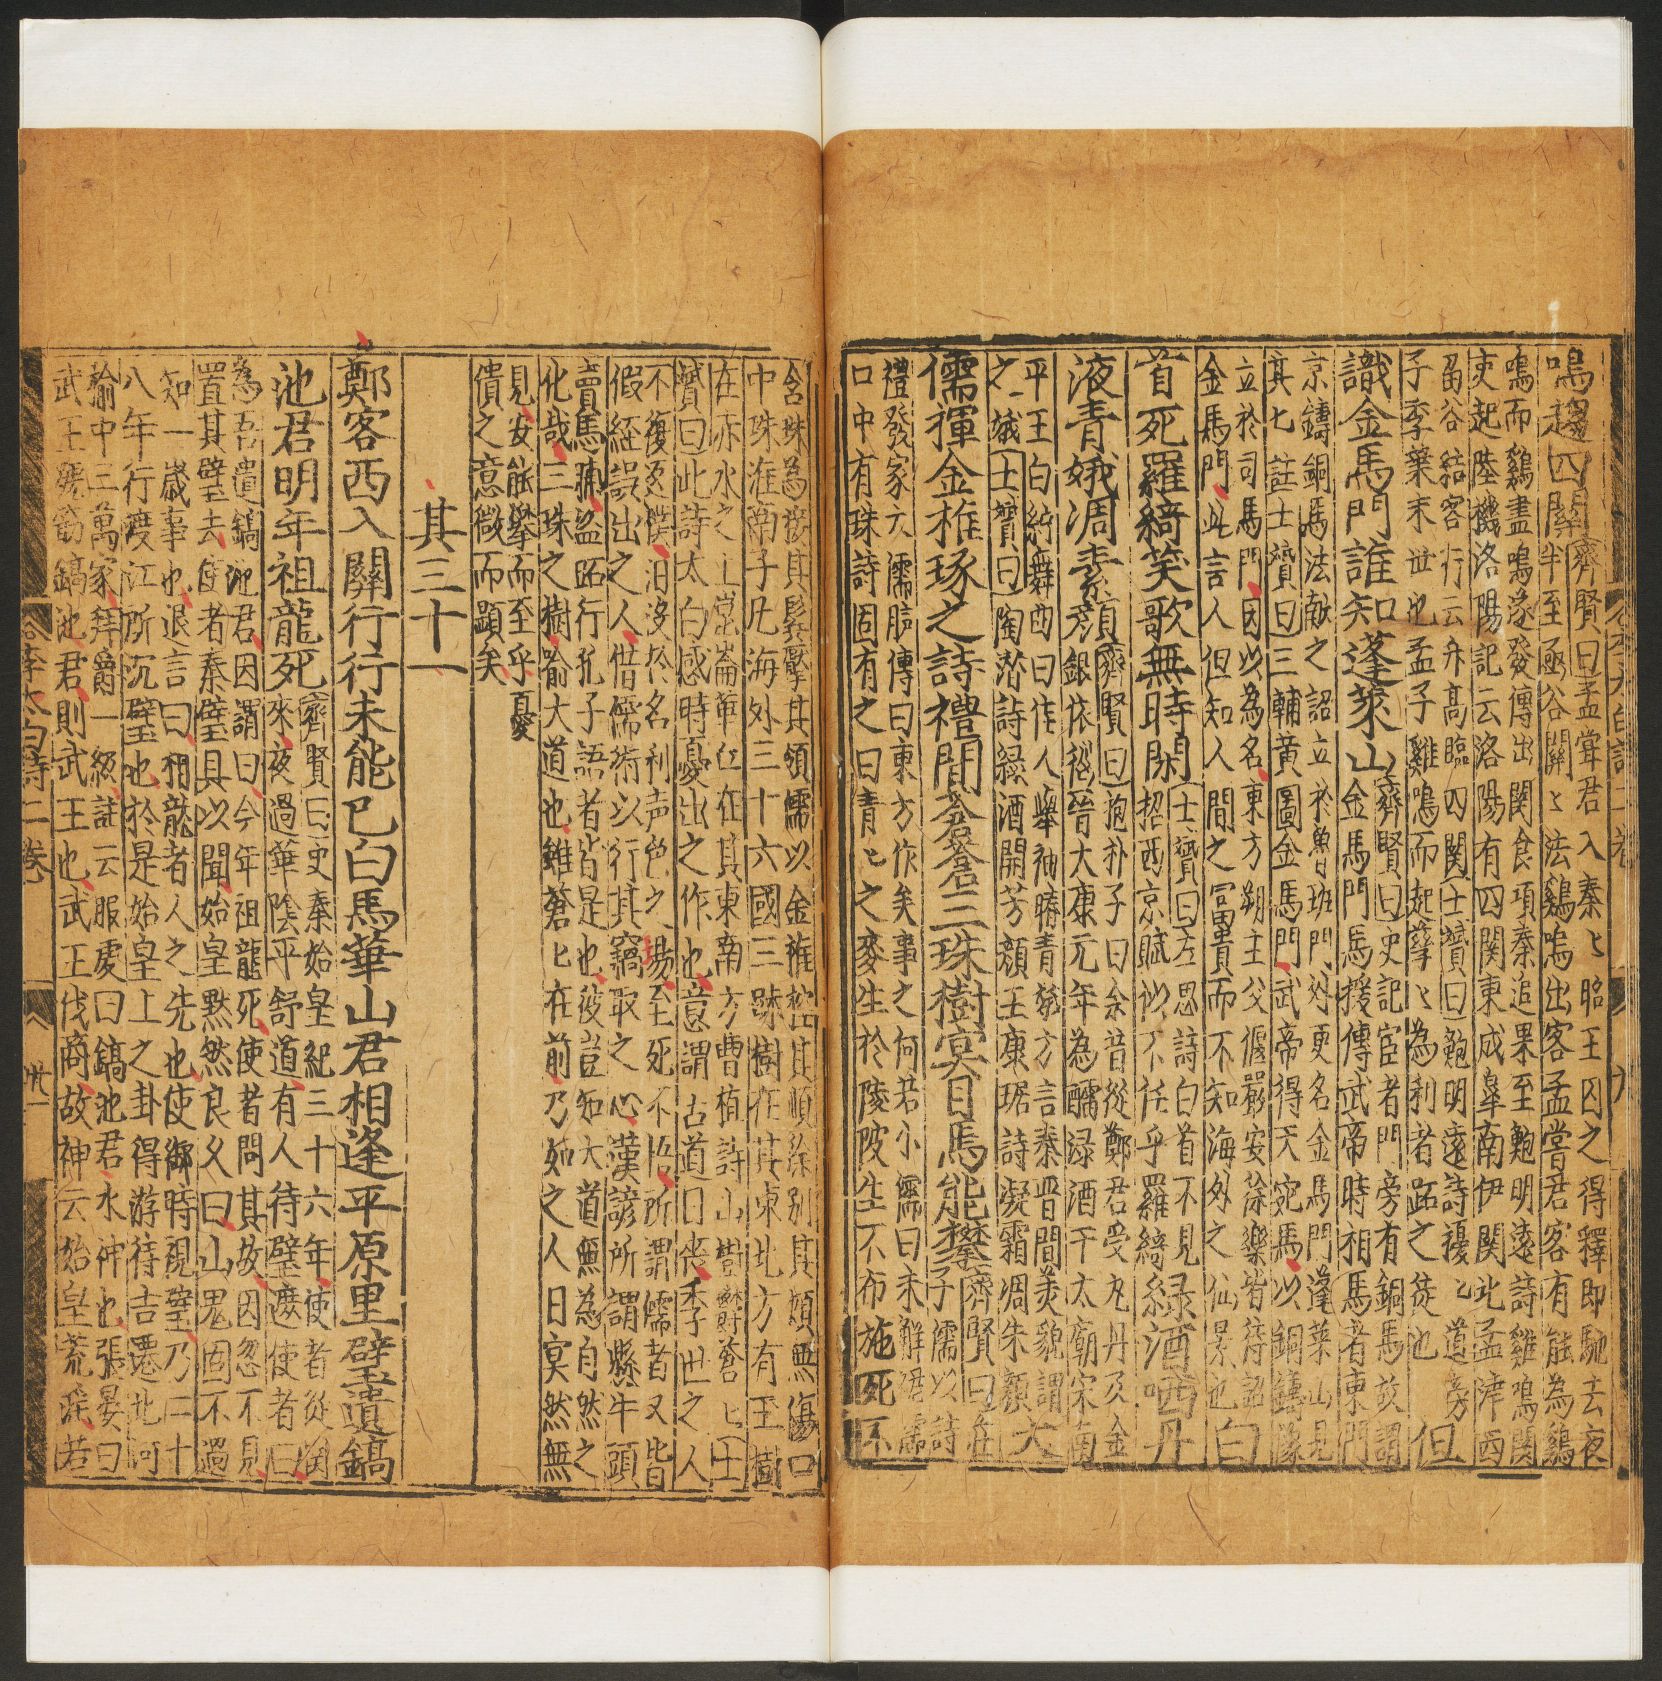 鳴趨四關
齊賢曰孟嘗君入秦〻昭王囚之得釋即馳去夜
半至函谷關〻法鷄鳴出客孟嘗君客有能為鷄
鳴而鷄盡鳴遂發傳出関食頃秦追果至鮑明遠詩雞鳴関
吏起陸機洛陽記云洛陽有四関東成臯南伊関北孟津西
函谷結客行云升高臨四関士贇曰鮑明遠詩擾〻道旁
子季葉末世也孟子雞鳴而起孳〻為利者跖之徒也
但
識金馬門誰知蓬萊山
齊賢曰史記宦者門旁有銅馬故謂
金馬門馬援傳武帝時相馬者東門
京鑄銅馬法獻之詔立於魯班門外更名金馬門蓬萊山見
其七註士贇曰三輔黃圖金馬門武帝得大宛馬以銅鑄像
立於司馬門因以為名東方朔主父偃嚴安徐樂皆待詔
金馬門此言人但知人間之冨貴而不知海外之仙景也
白
首死羅綺笑歌無時閑
士贇曰左思詩白首不見
招西京賦似不任乎羅綺
綠酒哂丹
液青娥凋素顏
齊賢曰抱朴子曰余昔從鄭君受九丹及金
銀依經晉大康元年為醽淥酒于太廟宋南
平王白紵舞曲曰作人舉袖睇青蛾方言秦晉間美貌謂
之娥士贇曰陶潛詩綠酒開芳顏王康琚詩凝霜凋朱顏
大
儒揮金椎琢之詩禮間蒼蒼三珠樹冥目焉能攀
齊賢曰莊
子儒以詩
禮發冢大儒臚傳曰東方作矣事之何若小儒曰未解裙襦
口中有珠詩固有之曰青〻之麥生於陵陂生不布施死不
含珠為接其鬢擪其頷儒以金椎控其頤徐別其頰無傷口
中珠淮南子凡海外三十六國三珠樹在其東北方有玉樹
在赤水之上崑崙華丘在其東南方曹植詩山樹欝蒼〻士
贇曰此詩太白感時憂世之作也意謂古道日喪季世之人
不復返僕汩沒於名利声色之場至死不悟所謂儒者又皆
假經誤世之人借儒術以行其竊取之心漢諺所謂縣牛頭
賣馬脯盜跖行孔子語者皆是也彼豈知大道無為自然之
化哉三珠之樹喻大道也雖蒼〻在前乃如之人日冥然無
見安能攀而至乎憂
憒之意微而顯矣
其三十一
鄭客西入關行行未能已白馬華山君相逢平原里璧遺鎬
池君明年祖龍死
齊賢曰史秦始皇紀三十六年使者從関
東來夜過華陰平舒道有人待璧遮使者曰
為吾遺鎬池君因謂曰今年祖龍死使者問其故因忽不見
置其璧去使者奉璧具以聞始皇黙然良久曰山鬼固不過
知一歲事也退言曰祖龍者人之先也使御府視璧乃二十
八年行渡江所沉璧也於是始皇上之卦得游徙吉遷北河
榆中三萬家拜爵一級註云服虔曰鎬池君水神也張晏曰
武王居鎬鎬池君則武王也武王伐商故神云始皇荒淫若
李太白詩二卷